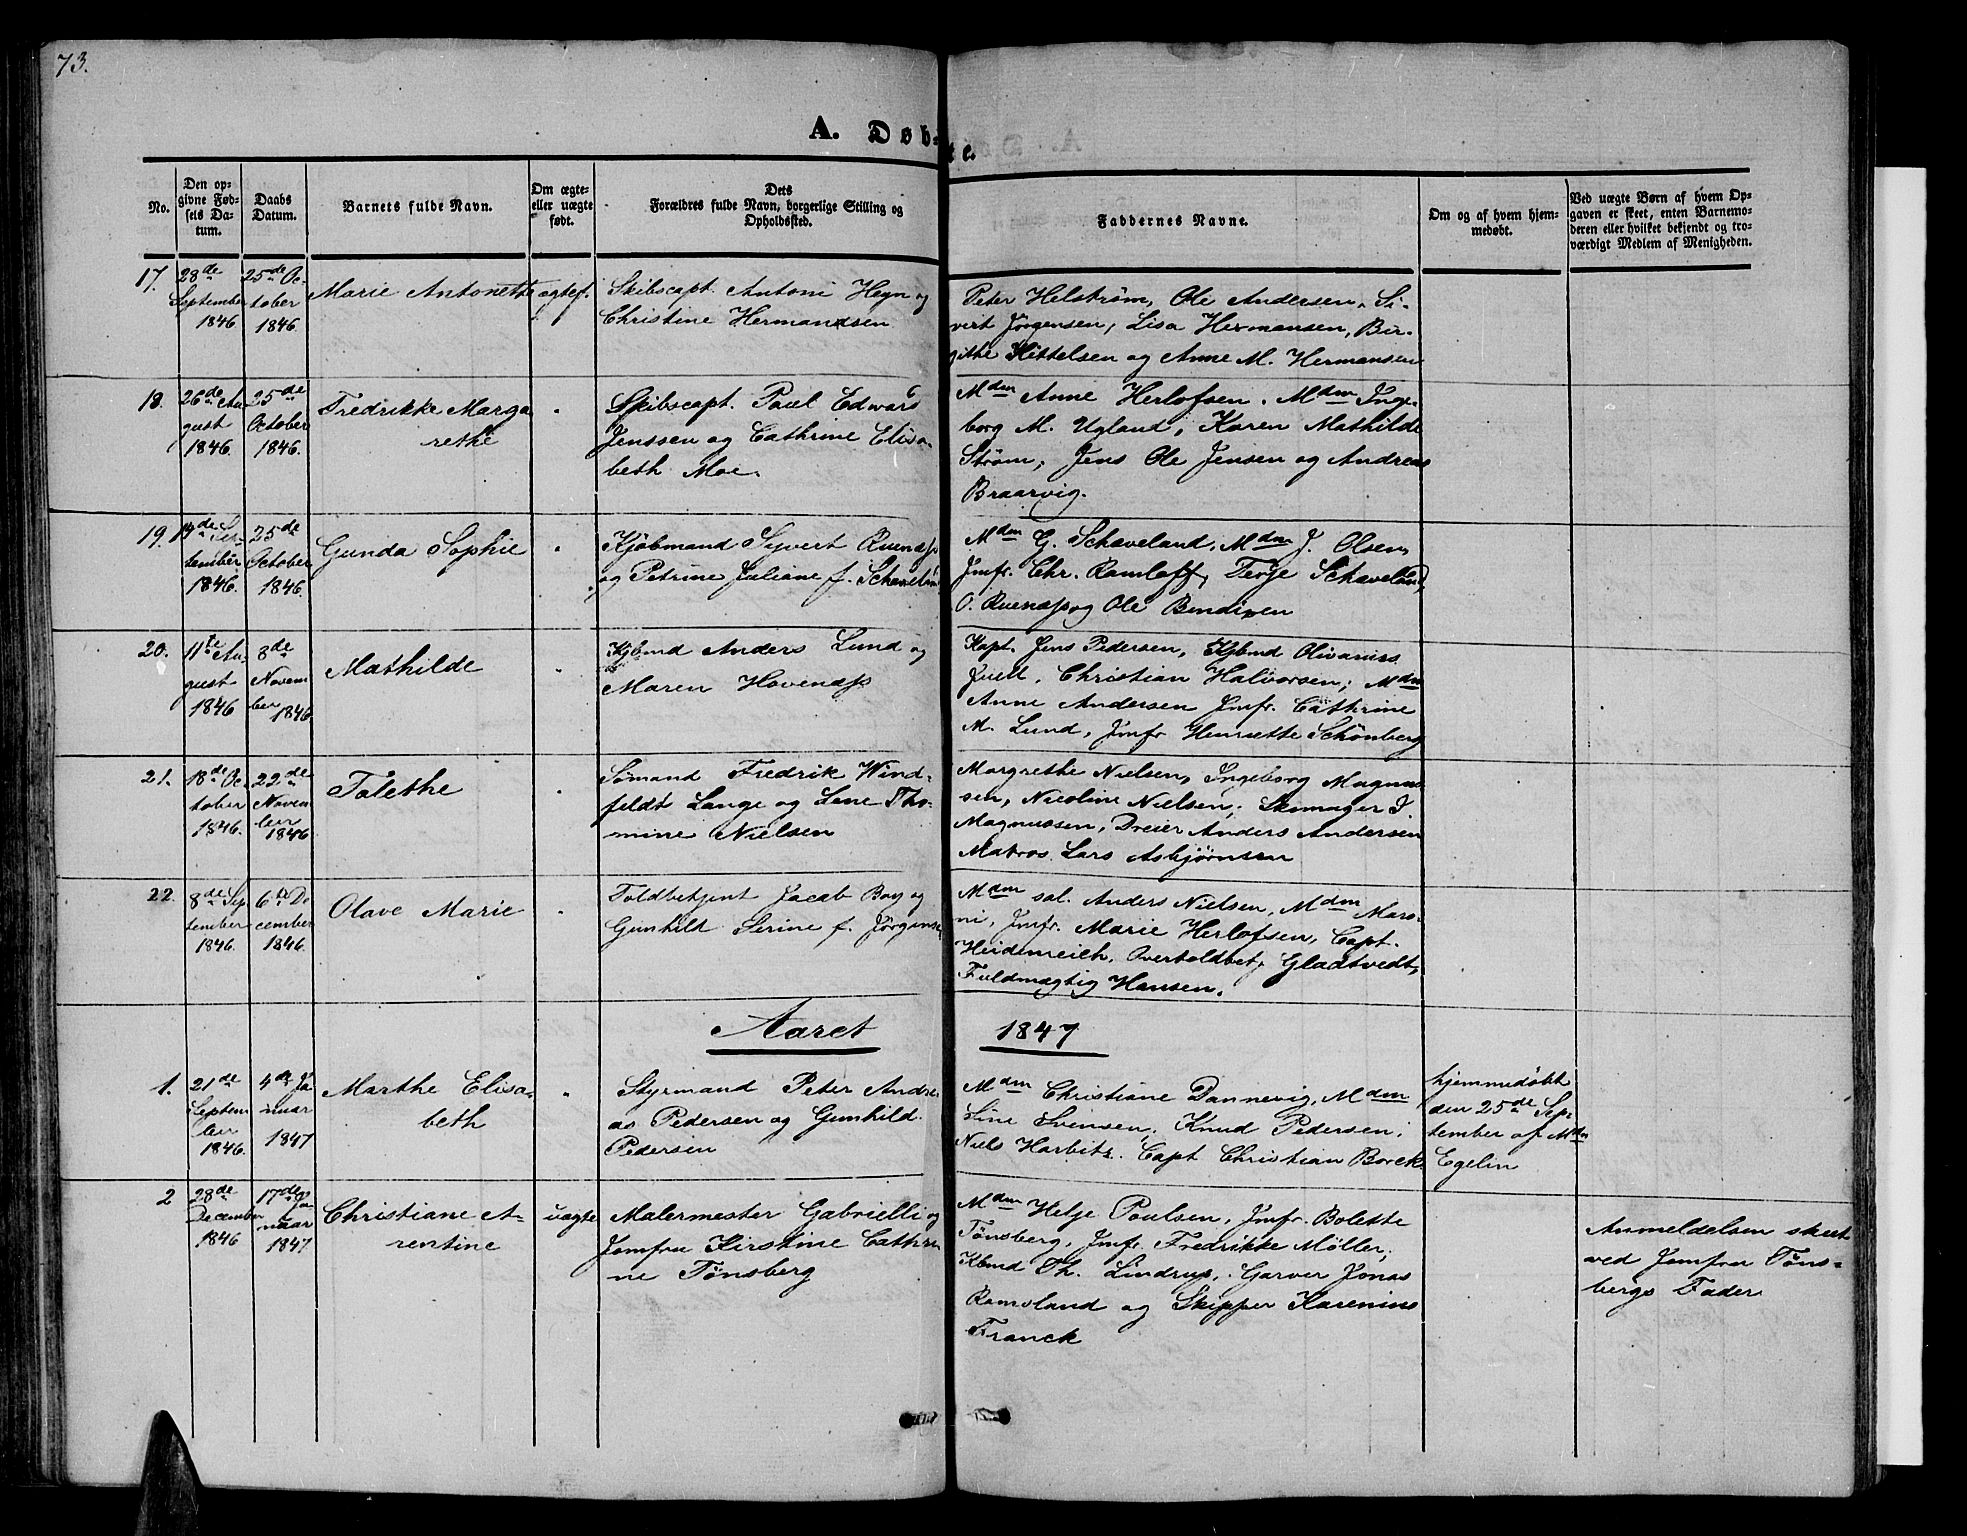 73.
A. Døbte.
No.
Den op-
givne Fød-
sels Da-
tum.
Daabs
Datum.
Barnets fulde Navn.
Om ægte-
eller uægte
født.
Dets
Forældres fulde Navn, borgerlige Stilling og
Opholdssted.
Faddernes Navne.
Om og af hvem hjem-
medøbt.
Ved uægte Børn af hvem Op-
gaven er skeet, enten Barnemo-
deren eller hvilket bekjendt og tro-
værdigt Medlem af Menigheden.
17.
28de
September
1846
25de Oc-
tober
1846.
Marie Antonette
ægtef.
Skibscapt. Antoni Hegn og
Christine Hermandsen
Peter Helstrøm, Ole Andersen, Si-
vert Jørgensen, Lisa Hermansen, Bir-
githe Kittelsen og Anne M. Hermansen
18.
26de Au-
gust
1846.
25de
October
1846.
Fredrikke Marga
rethe
"
Skibscapt. Paul Edward
Jenssen og Cathrine Elisa-
beth Moe.
Mdm Anne Herlofsen, Mdm Inge-
borg M. Ugland, Karen Mathilde
Strøm, Jens Ole Jensen og Andreas
Braarvig.
19.
14de Sep-
tember
1846.
25de
October
1846.
Gunda Sophie
"
Kjøbmand Syvert
og Petrine Juliane f.
Mdm G. Schaveland, Mdm J. Olsen,
Jmfr. Chr. Ramloff, Terje Schaveland,
og Ole Bendixen
20.
11te Au-
gust
1846
8de
Novem
ber 1846
Mathilde
"
Kjbmd Anders Lund og
Maren
Kapt. Jens Pedersen, Kjbmd Olivarius
Juell, Christian Halvorsen; Mdm
Anne Andersen Jmfr. Cathrine
M. Lund, Jmfr Henriette Schönberg
21.
18de Oc-
tober
1846.
22de
Novem
ber
1846
Talethe
"
Sømand Fredrik Wind-
feldt Lange og Lene Tho-
mine Nielsen
Margrethe Nielsen, Ingeborg Magnus
sen, Nicoline Nielsen; Skomager J.
Magnussen, Dreier Anders Andersen
Matros Lars Asbjørnsen
22.
8de Sep
tember
1846.
6te De
cember
1846.
Olave Marie
"
Toldbetjent Jacob Boy og
Gunhild Serine f. Jørgensen
Mdm sal. Anders Nielsen, Mdm Maro-
ni, Jmfr. Marie Herlofsen, Capt.
Heidenreich, Overtoldbetj Gladtvedt,
Fuldmægtig Hansen.
Aaret 1847
1.
21de
Septem
ber
1846.
4de Ja
nuar
1847
Marthe Elisa-
beth
"
Styrmand Peter Andre
as Pedersen og Gunhild
Pedersen
Mdm Christiane Dannevig, Mdm
Sine Svensen, Knud Pedersen;
Niels Harbitz. Capt Christian Borck
hjemmedøbt
den 25de Sep-
tember af Mdm
Egelin
2
28de
December
1846
17de Ja
nuar
1847
Christiane A-
rentine
uægte
Malermester Gabrielli og
Jomfru Kirstine Cathri
ne Tønsberg
Mdm Helje Poulsen, Jmfr. Bolette
Tønsberg, Jmfr. Fredrikke Møller;
Kbmd Th. Lindrup, Garver Jonas
Ramsland og Skipper Karenius
Franck
Anmeldelsen skeet
ved Jomfru Tøns-
bergs Fader